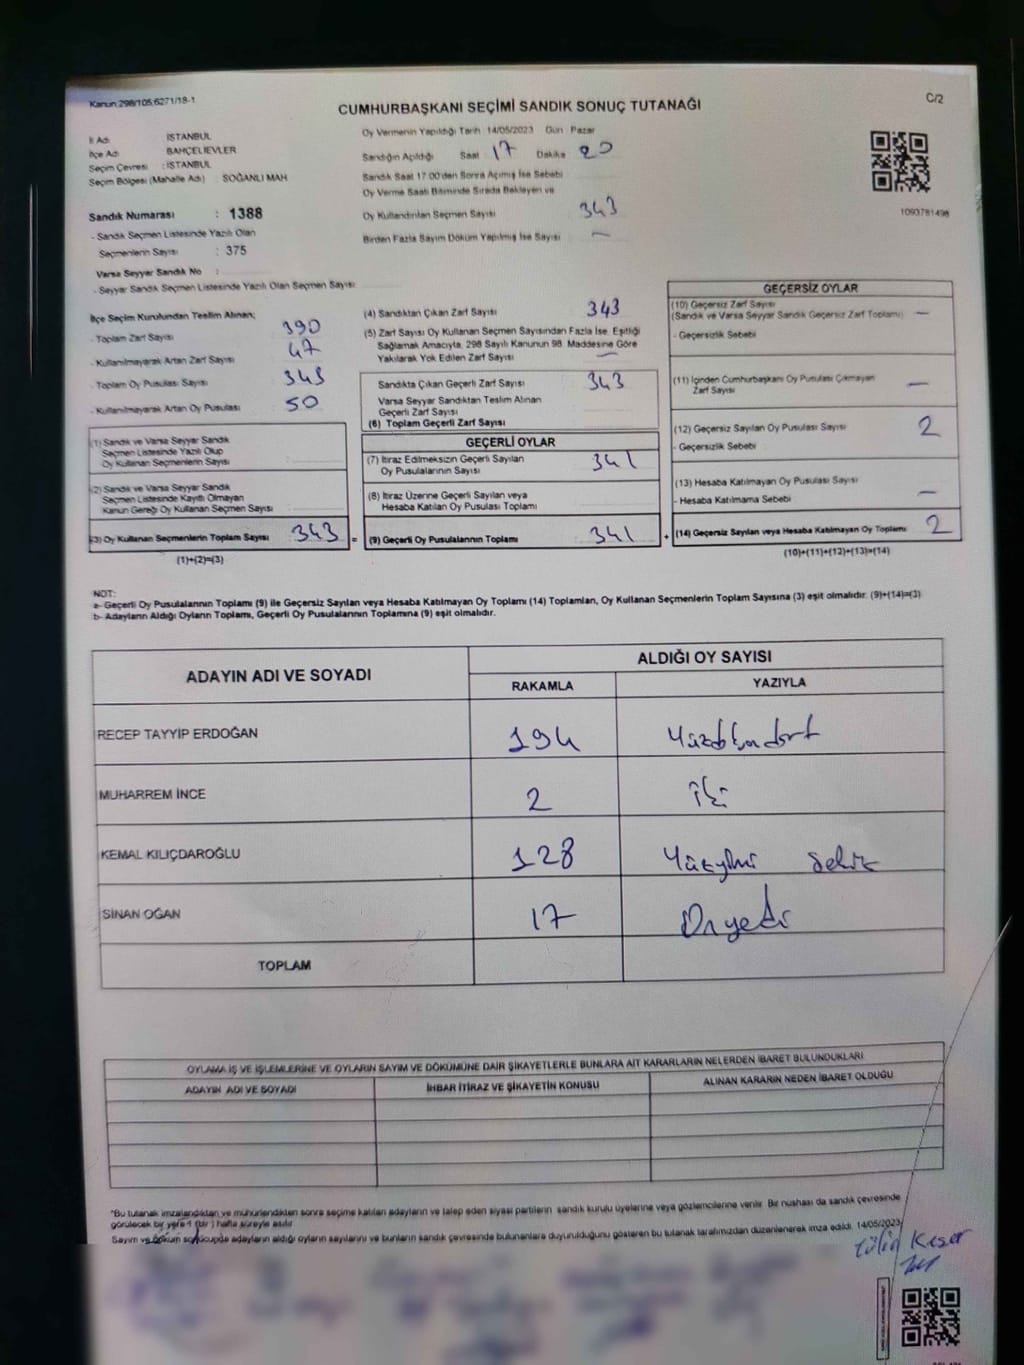 Kanun:298/105;6271/18-1
C/2
CUMHURBAŞKANI SEÇİMİ SANDIK SONUÇ TUTANAĞI
İl Adı : İSTANBUL
İlçe Adı : BAHÇELİEVLER
Seçim Çevresi : İSTANBUL
Seçim Bölgesi (Mahalle Adı) : SOĞANLI MAH
Sandık Numarası : 1388
- Sandık Seçmen Listesinde Yazılı Olan
Seçmenlerin Sayısı : 375
Varsa Seyyar Sandık No :
- Seyyar Sandık Seçmen Listesinde Yazılı Olan Seçmen Sayısı:
Oy Vermenin Yapıldığı Tarih 14/05/2023 Gün Pazar
Sandığın Açıldığı Saat 17 Dakika 20
Sandık Saat 17:00'den Sonra Açımış İse Sebebi
Oy Verme Saati Bitiminde Sırada Bekleyen ve
Oy Kullandırılan Seçmen Sayısı 343
Birden Fazla Sayım Döküm Yapılmış İse Sayısı —
1093781498
İlçe Seçim Kurulundan Teslim Alınan;
- Toplam Zarf Sayısı 390
- Kullanılmayarak Artan Zarf Sayısı 47
- Toplam Oy Pusulası Sayısı 343
- Kullanılmayarak Artan Oy Pusulası 50
(1) Sandık ve Varsa Seyyar Sandık
Seçmen Listesinde Yazılı Olup
Oy Kullanan Seçmenlerin Sayısı
(2) Sandık ve Varsa Seyyar Sandık
Seçmen Listesinde Kayıtlı Olmayan
Kanun Gereği Oy Kullanan Seçmen Sayısı
(3) Oy Kullanan Seçmenlerin Toplam Sayısı 343 =
(1)+(2)=(3)
(4) Sandıktan Çıkan Zarf Sayısı 343
(5) Zarf Sayısı Oy Kullanan Seçmen Sayısından Fazla İse, Eşitliği
Sağlamak Amacıyla, 298 Sayılı Kanunun 98. Maddesine Göre
Yakılarak Yok Edilen Zarf Sayısı —
Sandıkta Çıkan Geçerli Zarf Sayısı 343
Varsa Seyyar Sandıktan Teslim Alınan
Geçerli Zarf Sayısı
(6) Toplam Geçerli Zarf Sayısı
GEÇERLİ OYLAR
(7) İtiraz Edilmeksizin Geçerli Sayılan
Oy Pusulalarının Sayısı 341
(8) İtiraz Üzerine Geçerli Sayılan veya
Hesaba Katılan Oy Pusulası Toplamı
(9) Geçerli Oy Pusulalarının Toplamı 341 +
GEÇERSİZ OYLAR
(10) Geçersiz Zarf Sayısı
(Sandık ve Varsa Seyyar Sandık Geçersiz Zarf Toplamı) —
- Geçersizlik Sebebi
(11) İçinden Cumhurbaşkanı Oy Pusulası Çıkmayan
Zarf Sayısı —
(12) Geçersiz Sayılan Oy Pusulası Sayısı 2
- Geçersizlik Sebebi
(13) Hesaba Katılmayan Oy Pusulası Sayısı
- Hesaba Katılmama Sebebi —
(14) Geçersiz Sayılan veya Hesaba Katılmayan Oy Toplamı 2
(10)+(11)+(12)+(13)=(14)
NOT:
a- Geçerli Oy Pusulalarının Toplamı (9) ile Geçersiz Sayılan veya Hesaba Katılmayan Oy Toplamı (14) Toplamları, Oy Kullanan Seçmenlerin Toplam Sayısına (3) eşit olmalıdır. (9)+(14)=(3)
b- Adayların Aldığı Oyların Toplamı, Geçerli Oy Pusulalarının Toplamına (9) eşit olmalıdır.
ADAYIN ADI VE SOYADI
ALDIĞI OY SAYISI
RAKAMLA YAZIYLA
RECEP TAYYİP ERDOĞAN 194 Yüzdoksandört
MUHARREM İNCE 2 iki
KEMAL KILIÇDAROĞLU 128 Yüzyirmi Sekiz
SİNAN OĞAN 17 Onyedi
TOPLAM
OYLAMA İŞ VE İŞLEMLERİNE VE OYLARIN SAYIM VE DÖKÜMÜNE DAİR ŞİKAYETLERLE BUNLARA AİT KARARLARIN NELERDEN İBARET BULUNDUKLARI
ADAYIN ADI VE SOYADI İHBAR İTİRAZ VE ŞİKAYETİN KONUSU ALINAN KARARIN NEDEN İBARET OLDUĞU
"Bu tutanak imzalandıktan ve mühürlendikten sonra seçime katılan adayların ve talep eden siyasi partilerin sandık kurulu üyelerine veya gözlemcilerine verilir. Bir nüshası da sandık çevresinde
görülecek bir yere 1 (bir) hafta süreyle asılır
Sayım ve döküm sonucunda adayların aldığı oyların sayılarını ve bunların sandık çevresinde bulunanlara duyurulduğunu gösteren bu tutanak tarafımızdan düzenlenerek imza edildi. 14/05/2023
Tülin Keser